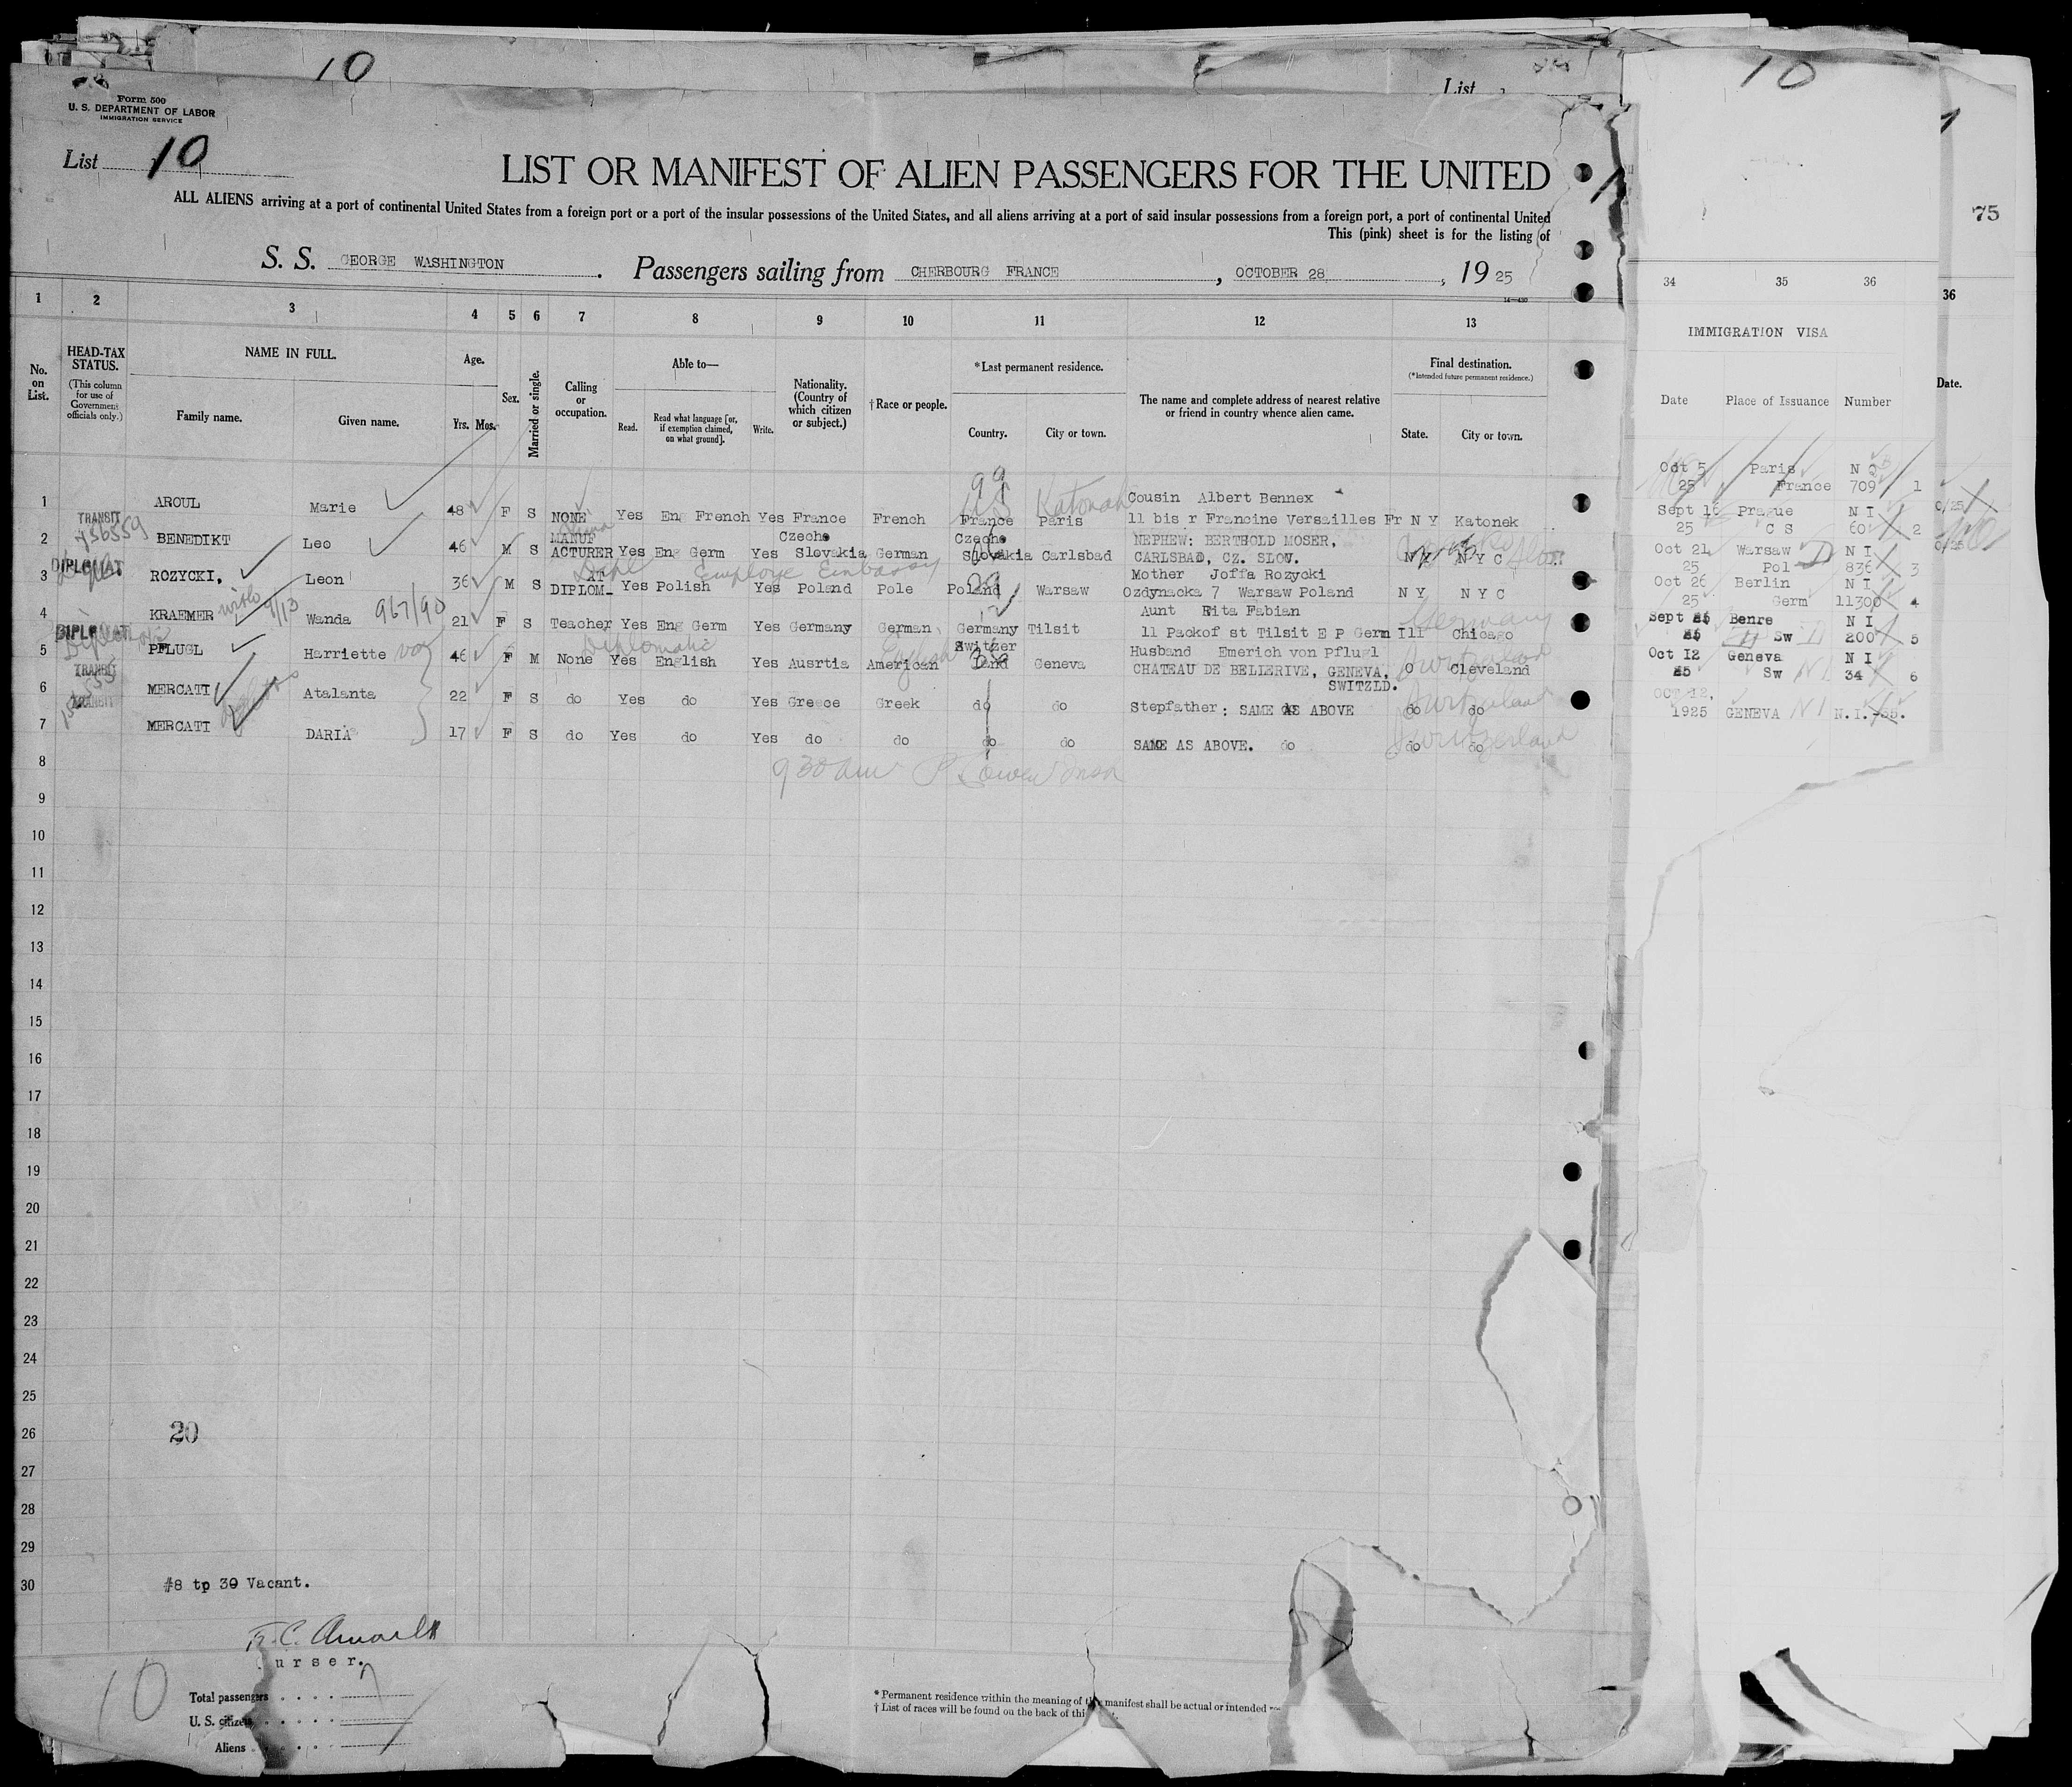 10
List
10
Form 500
U. S. DEPARTMENT OF LABOR
IMMIGRATION SERVICE
List 10
LIST OR MANIFEST OF ALIEN PASSENGERS FOR THE UNITED
ALL ALIENS arriving at a port of continental United States from a foreign port or a port of the insular possessions of the United States, and all aliens arriving at a port of said insular possessions from a foreign port, a port of continental United
This (pink) sheet is for the listing of
75
S. S. GEORGE WASHINGTON. Passengers sailing from CHERBOURG FRANCE, OCTOBER 28, 19 25
14—430
1 2 3 4 5 6 7 8 9 10 11 12 13 34 35 36 36
No. on List.
HEAD-TAX STATUS.
(This column for use of Government officials only.)
NAME IN FULL.
Family name. Given name.
Age.
Yrs. Mos.
Sex.
Married or single.
Calling or occupation.
Able to—
Read. Read what language [or, if exemption claimed, on what ground]. Write.
Nationality. (Country of which citizen or subject.)
†Race or people.
*Last permanent residence.
Country. City or town.
The name and complete address of nearest relative or friend in country whence alien came.
Final destination.
(*Intended future permanent residence.)
State. City or town.
IMMIGRATION VISA
Date Place of Issuance Number
Date.
99
US Katonah
1 AROUL Marie 48 F S NONE Yes Eng French Yes France French France Paris Cousin Albert Bennex 11 bis r Francine Versailles Fr N Y Katonek Oct 5 25 Paris France N Q 709 1
TRANSIT
2 BENEDIKT Leo 46 M S MANUF ACTURER Yes Eng Germ Yes Czecho Slovakia German Czecho Slovakia Carlsbad NEPHEW: BERTHOLD MOSER, CARLSBAD, CZ. SLOV. N Y N Y C Sept 16 25 Prague C S N I 60 2
DIPLOMAT
Dipl Employe Embassy
3 ROZYCKI, Leon 36 M S DIPLOM-AT Yes Polish Yes Poland Pole Poland Warsaw Mother Joffa Rozycki Ozdynacka 7 Warsaw Poland N Y N Y C Oct 21 25 Warsaw Pol N I 836 3
4 KRAEMER Wanda 967/90 21 F S Teacher Yes Eng Germ Yes Germany German Germany Tilsit Aunt Rita Fabian 11 Packof st Tilsit E P Germ Ill Chicago Oct 26 25 Berlin Germ N I 11300 4
Germany
DIPLOMAT
Diplomatic
5 PFLUGL Harriette von 46 F M None Yes English Yes Ausrtia American Switzer land Geneva Husband Emerich von Pflugl CHATEAU DE BELLERIVE, GENEVA, SWITZLD. O Cleveland Sept 25 Benre Sw N I 200 5
English
Switzerland
TRANSIT
6 MERCATI Atalanta 22 F S do Yes do Yes Greece Greek do do Stepfather: SAME AS ABOVE do do Oct 12 25 Geneva Sw N I 34 6
Switzerland
TRANSIT
7 MERCATI DARIA 17 F S do Yes do Yes do do do do SAME AS ABOVE. do do do OCT 12, 1925 GENEVA N.I. 35.
Switzerland
8
9
10
11
12
13
14
15
16
17
18
19
20
21
22
23
24
25
26 20
27
28
29
30 #8 tp 30 Vacant.
urser.
10
Total passengers 7
U. S. citizens
Aliens
* Permanent residence within the meaning of manifest shall be actual or intended
† List of races will be found on the back of